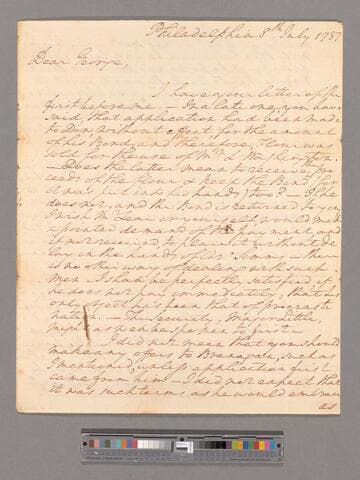 Philadelphia 8th July 1787
Dear George,
I have your letter of the
first before me. — In a late one, you have
said that application had been made
to without effect for the amount
of his Bond, and therefore, flour was
sold for the use of Mr. L. Washington.
— Does the latter mean to receive pro
ceeds of the flour & keep the Bond, for
it was put into his hands, too? — If he
does not, and the Bond is returned to you,
I wish Mr. Lear or yourself would make
a pointed demand of the payment and
if not received to place it without de
lay in the hands of Col. Simms — there
is no other way of dealing with such
men. I shall be perfectly satisfied if
he does not pay immediately, that his
only object has been that of procrasti
nation. — The Security, Major Little,
might as well be spoken to first. —
I did not mean that you should
make any offers to Branagan, such as
I mentioned, unless application first
came from him. — I did not expect that
it was such terms as he would embrace
as